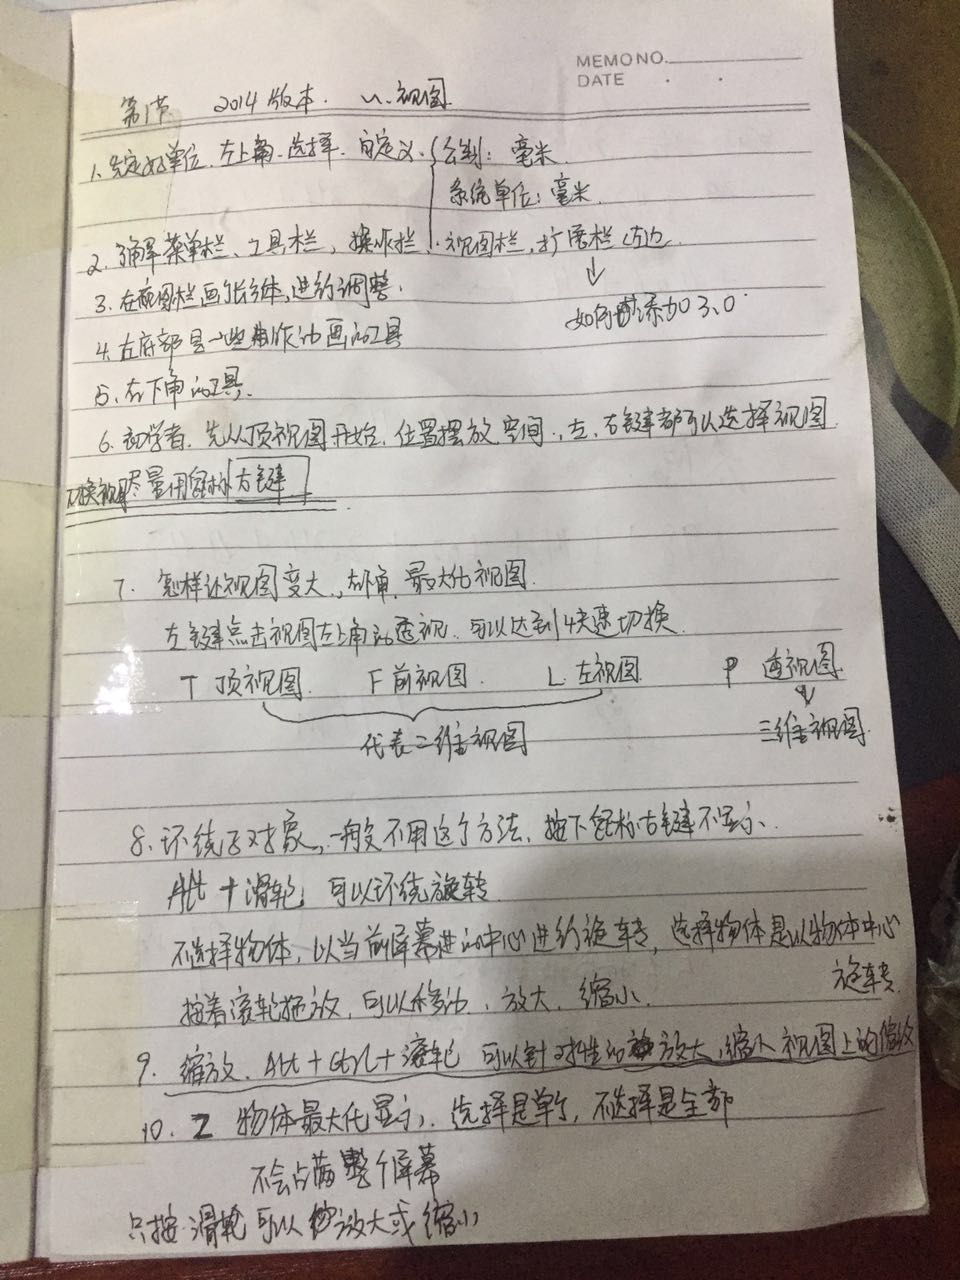 MEMO NO.
DATE . .
第1节 2014版本. 视图
1. 先定好单位. 左上角. 选择. 自定义. { 公制: 毫米.
系统单位: 毫米.
2. 了解菜单栏、工具栏, 操作栏, 视图栏, 扩展栏 右边.
↓
如何 添加3.0
3. 在视图栏画个长方体, 进行调整.
4. 左底部是一些制作动画的工具
5. 右下角的工具.
6. 初学者. 先从顶视图开始. 位置摆放空间., 左、右键都可以选择视图
切换视图尽量用鼠标右键.
7. 怎样让视图变大., 右下角. 最大化视图.
左键点击视图左上角的透视. 可以达到快速切换.
T 顶视图. F 前视图. L 左视图. P 透视图.
代表二维视图 三维视图.
8. 环绕子对象, 一般不用这个方法. 按下鼠标右键不显示.
Alt + 滑轮 可以环绕旋转
不选择物体, 以当前屏幕的中心进行旋转, 选择物体是以物体中心
旋转.
按着滚轮拖放, 可以移动、放大, 缩小.
9. 缩放. Alt + Ctrl + 滚轮 可以针对性的放大, 缩小 视图上的
10. Z 物体最大化显示, 选择是单个, 不选择是全部
不会占满整个屏幕
只按滑轮可以放大或缩小